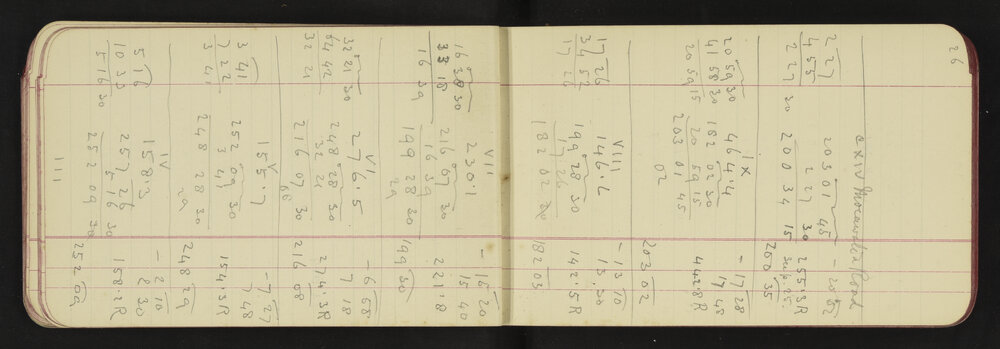 26
Road
2 27 203 01 45 - 20 52
4 55 2 27 30 255.3R
2 27 30 200 34 15 sub 25.
200 35
IX
20 59 30 464.4 - 17 28
41 58 30 182 02 30 17 48
20 59 15 20 59 15 442.8R
203 01 45
02
203 02
VIII
17 26 146.2 - 13 20
34 52 199 28 30 13.30
17 26 17 26 142.5R
182 02 30
182 03
VII
230.1 - 15 20
16 38 30 216 07 30 15 40
33 18 16 39 221.8
16 39 199 28 30 199 30
29
VI
276.5 - 6 58
32 21 30 248 28 30 7 18
64 42 32 21 274.3R
32 21 216 07 30 216 08
V
155.7 - 7 27
3 41 252 09 30 7 48
7 22 3 41 154.3R
3 41 248 28 30 248 29
29
IV
158.3 - 2 10
5 16 257 26 2 30
10 33 5 16 30 158.2R
5 16 30 252 09 30 252 09
III